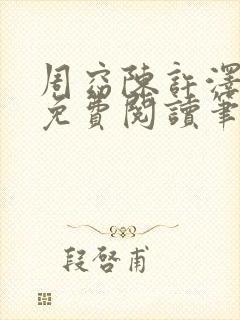 周窈陳許澤
免費閱讀筆
段啓甫